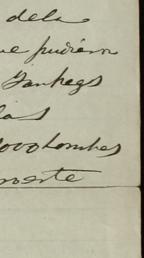 dela
ue pudiera
Yankegs
las
000 hombres
mente